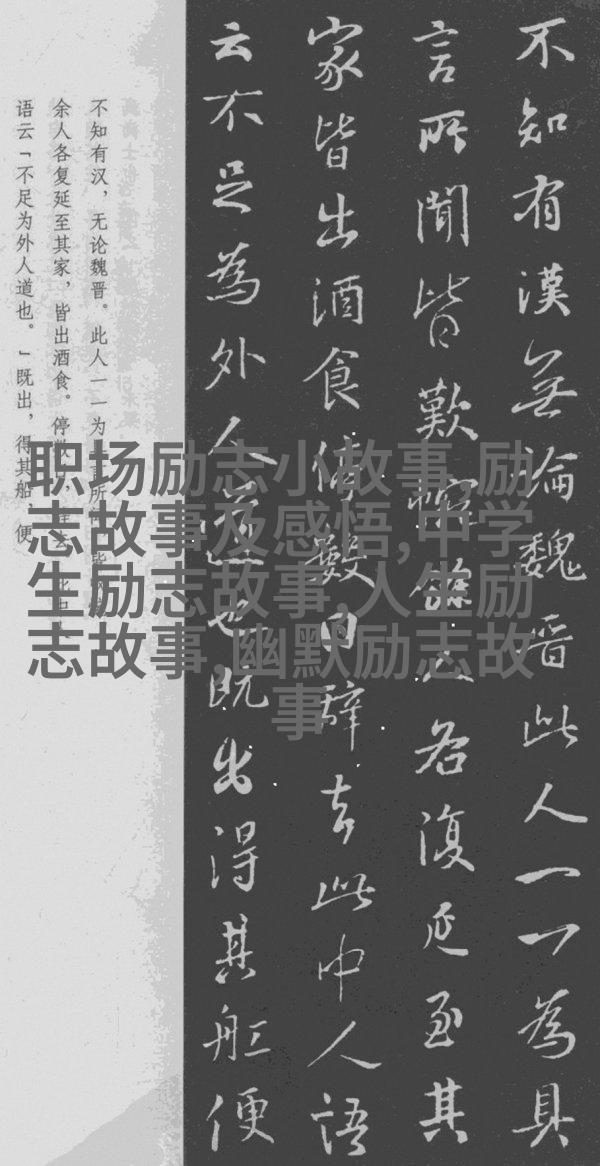 不知有漢無論魏晋此人一一為具
言所聞皆歎惋餘人各復延至其
家皆出酒食停數日辭去此中人語
云不足為外人道也既出得其船便
不知有汉，无论魏晋。此人一一为具言所
余人各复延至其家，皆出酒食。停数
语云「不足为外人道也。」既出，得其船，便
职场励志小故事,励
志故事及感悟,中学
生励志故事,人生励
志故事,幽默励志故
事